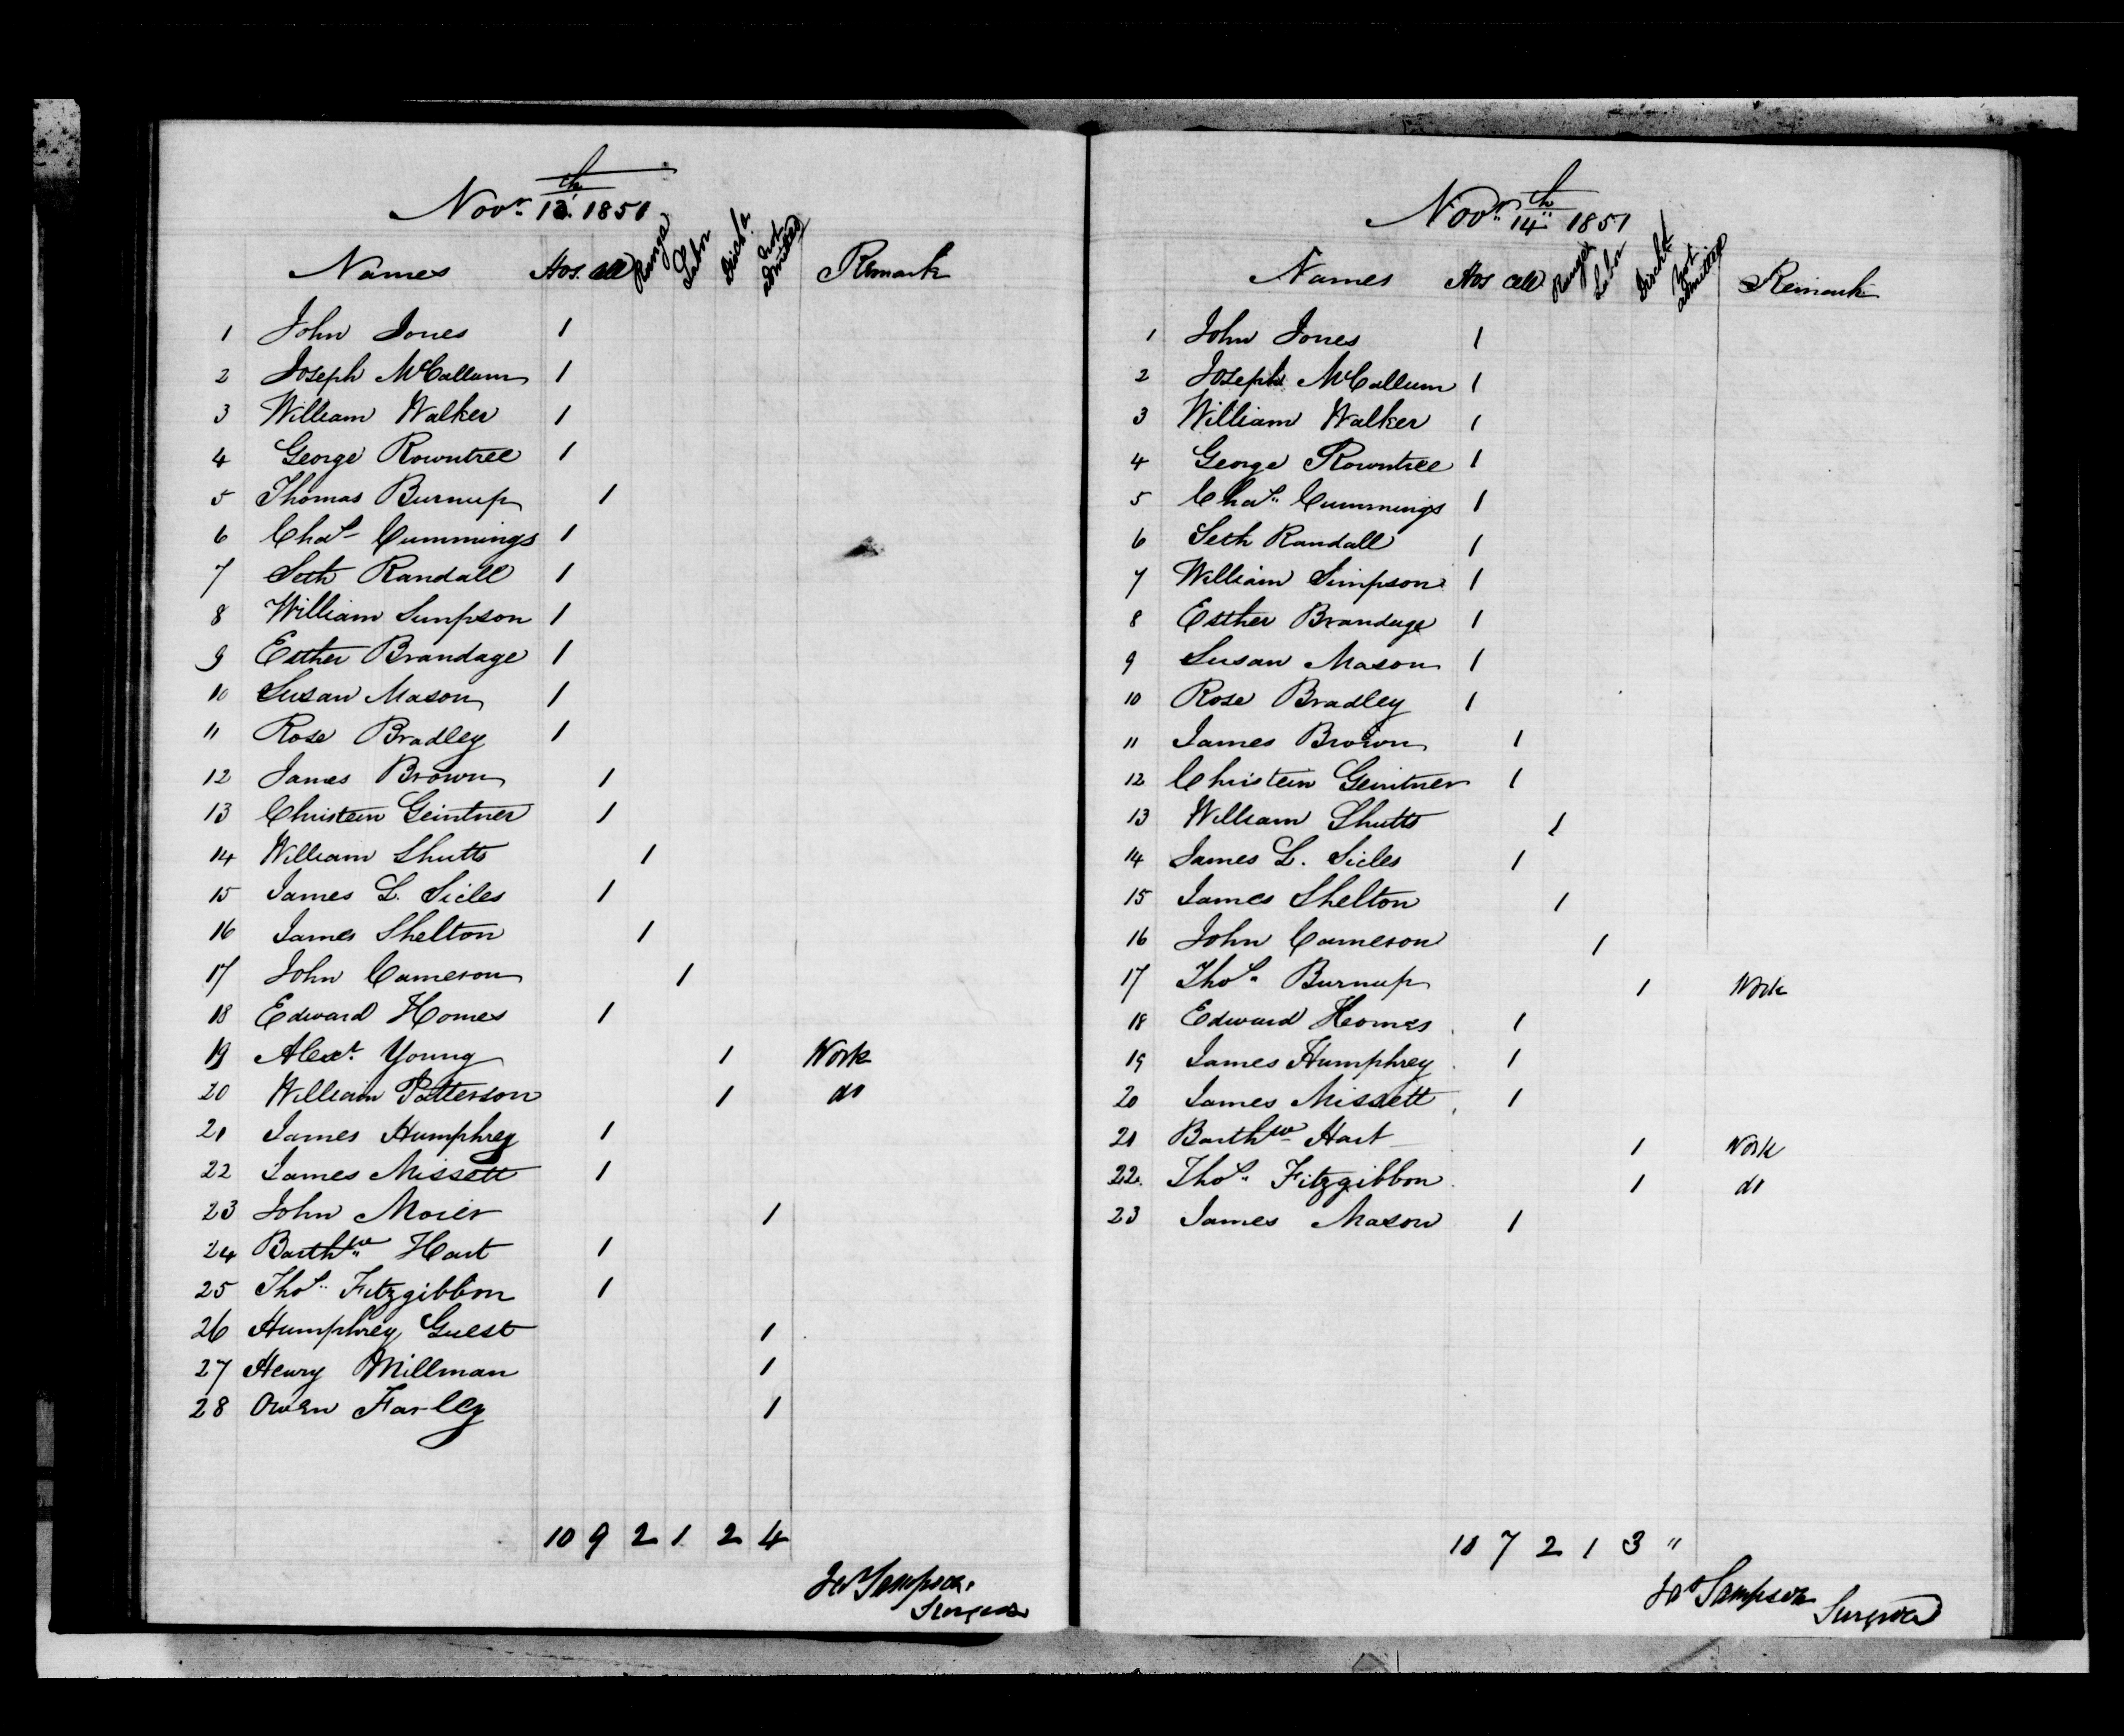 Novr. 13th. 1851
Names Hos. Cell Range Labor Discha. not admitted Remark
1 John Jones 1
2 Joseph McCallum 1
3 William Walker 1
4 George Rowntree 1
5 Thomas Burnup 1
6 Chas Cummings 1
7 Seth Randall 1
8 William Simpson 1
9 Esther Brandage 1
10 Susan Mason 1
11 Rose Bradley 1
12 James Brown 1
13 Christein Geintner 1
14 William Shutts 1
15 James L. Sicles 1
16 James Shelton 1
17 John Cameron 1
18 Edward Homes 1
19 Alexr. Young 1 Work
20 William Patterson 1 do
21 James Humphrey 1
22 James Missett 1
23 John Moier 1
24 Barthw. Hart 1
25 Thos. Fitzgibbon 1
26 Humphrey Guest 1
27 Henry Millman 1
28 Owen Farley 1
10 9 2 1 2 4
Jas Sampson
Surgeon
Novr. 14th 1851
Names Hos Cell Range Labor Discht not admitted Remark
1 John Jones 1
2 Joseph McCallum 1
3 William Walker 1
4 George Rowntree 1
5 Chas. Cummings 1
6 Seth Randall 1
7 William Simpson 1
8 Esther Brandage 1
9 Susan Mason 1
10 Rose Bradley 1
11 James Brown 1
12 Christein Geintner 1
13 William Shutts 1
14 James L. Sicles 1
15 James Shelton 1
16 John Cameron 1
17 Thos. Burnup 1 Work
18 Edward Homes 1
19 James Humphrey 1
20 James Missett 1
21 Barthw Hart 1 Work
22. Thos. Fitzgibbon 1 do
23 James Mason 1
10 7 2 1 3 "
Jas Sampson
Surgeon